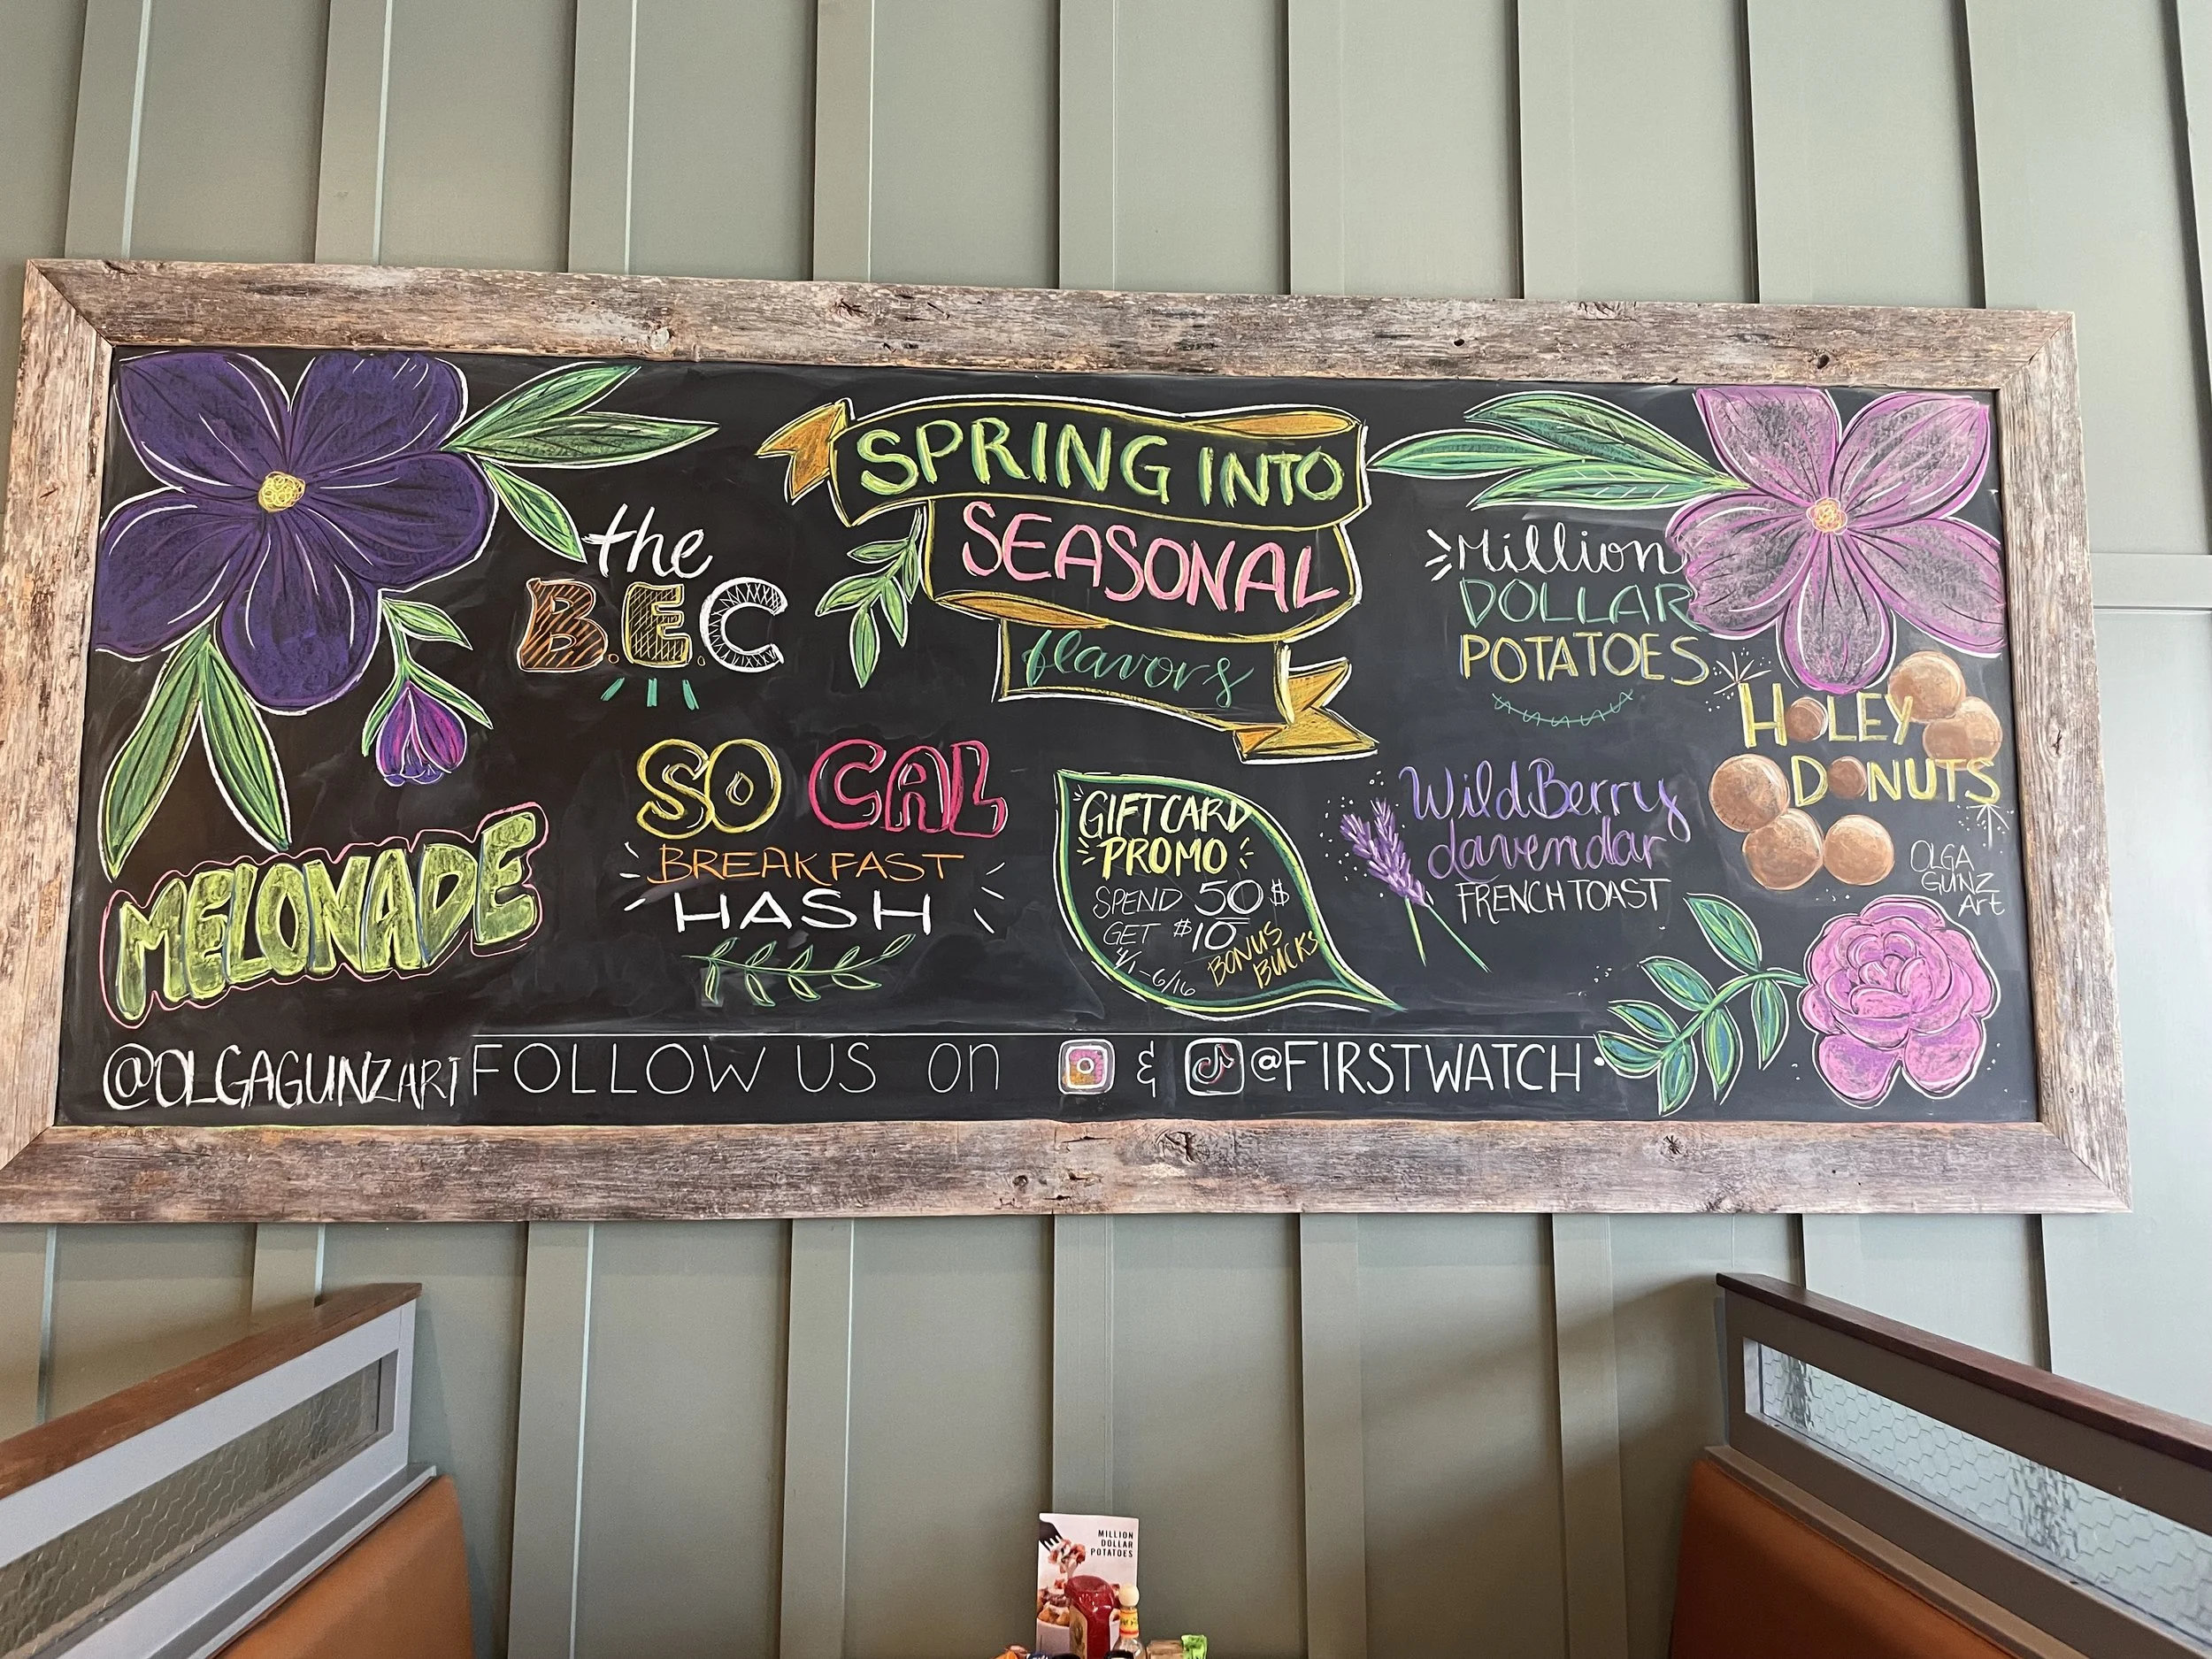 SPRING INTO
SEASONAL
flavors
the
B.E.C
Million
DOLLAR
POTATOES
HOLEY
DONUTS
MELONADE
SO CAL
BREAKFAST
HASH
GIFTCARD
PROMO
SPEND 50$
GET $10
BONUS
BUCKS
4/1-6/16
WildBerry
Lavendar
FRENCH TOAST
OLGA
GUNZ
Art
@OLGAGUNZART
FOLLOW US on & @FIRSTWATCH
MILLION
DOLLAR
POTATOES